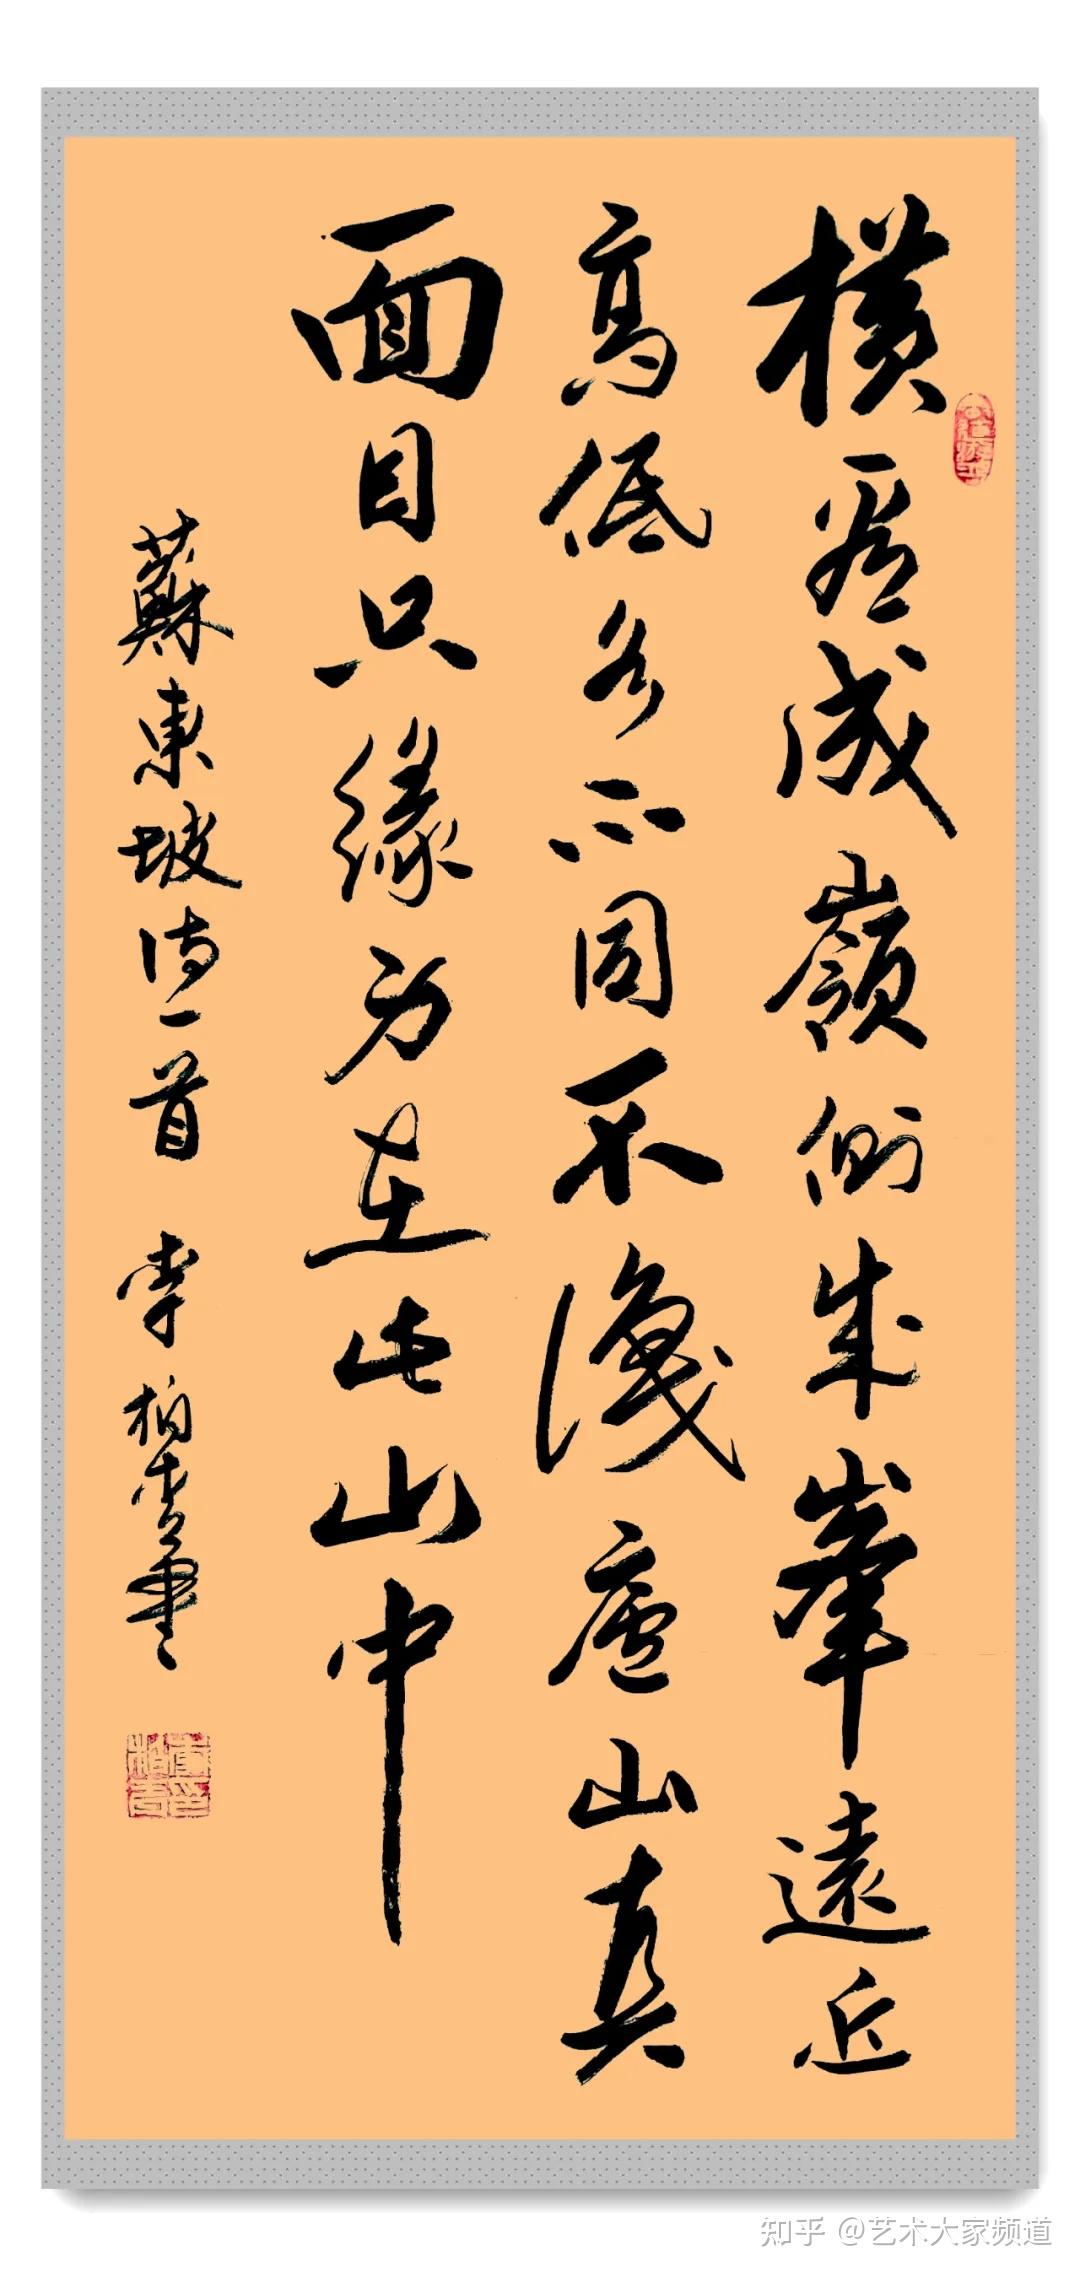 橫看成嶺側成峯遠近
高低各不同不識廬山真
面目只緣身在此山中
蘇東坡詩一首 李柏
知乎 @艺术大家频道